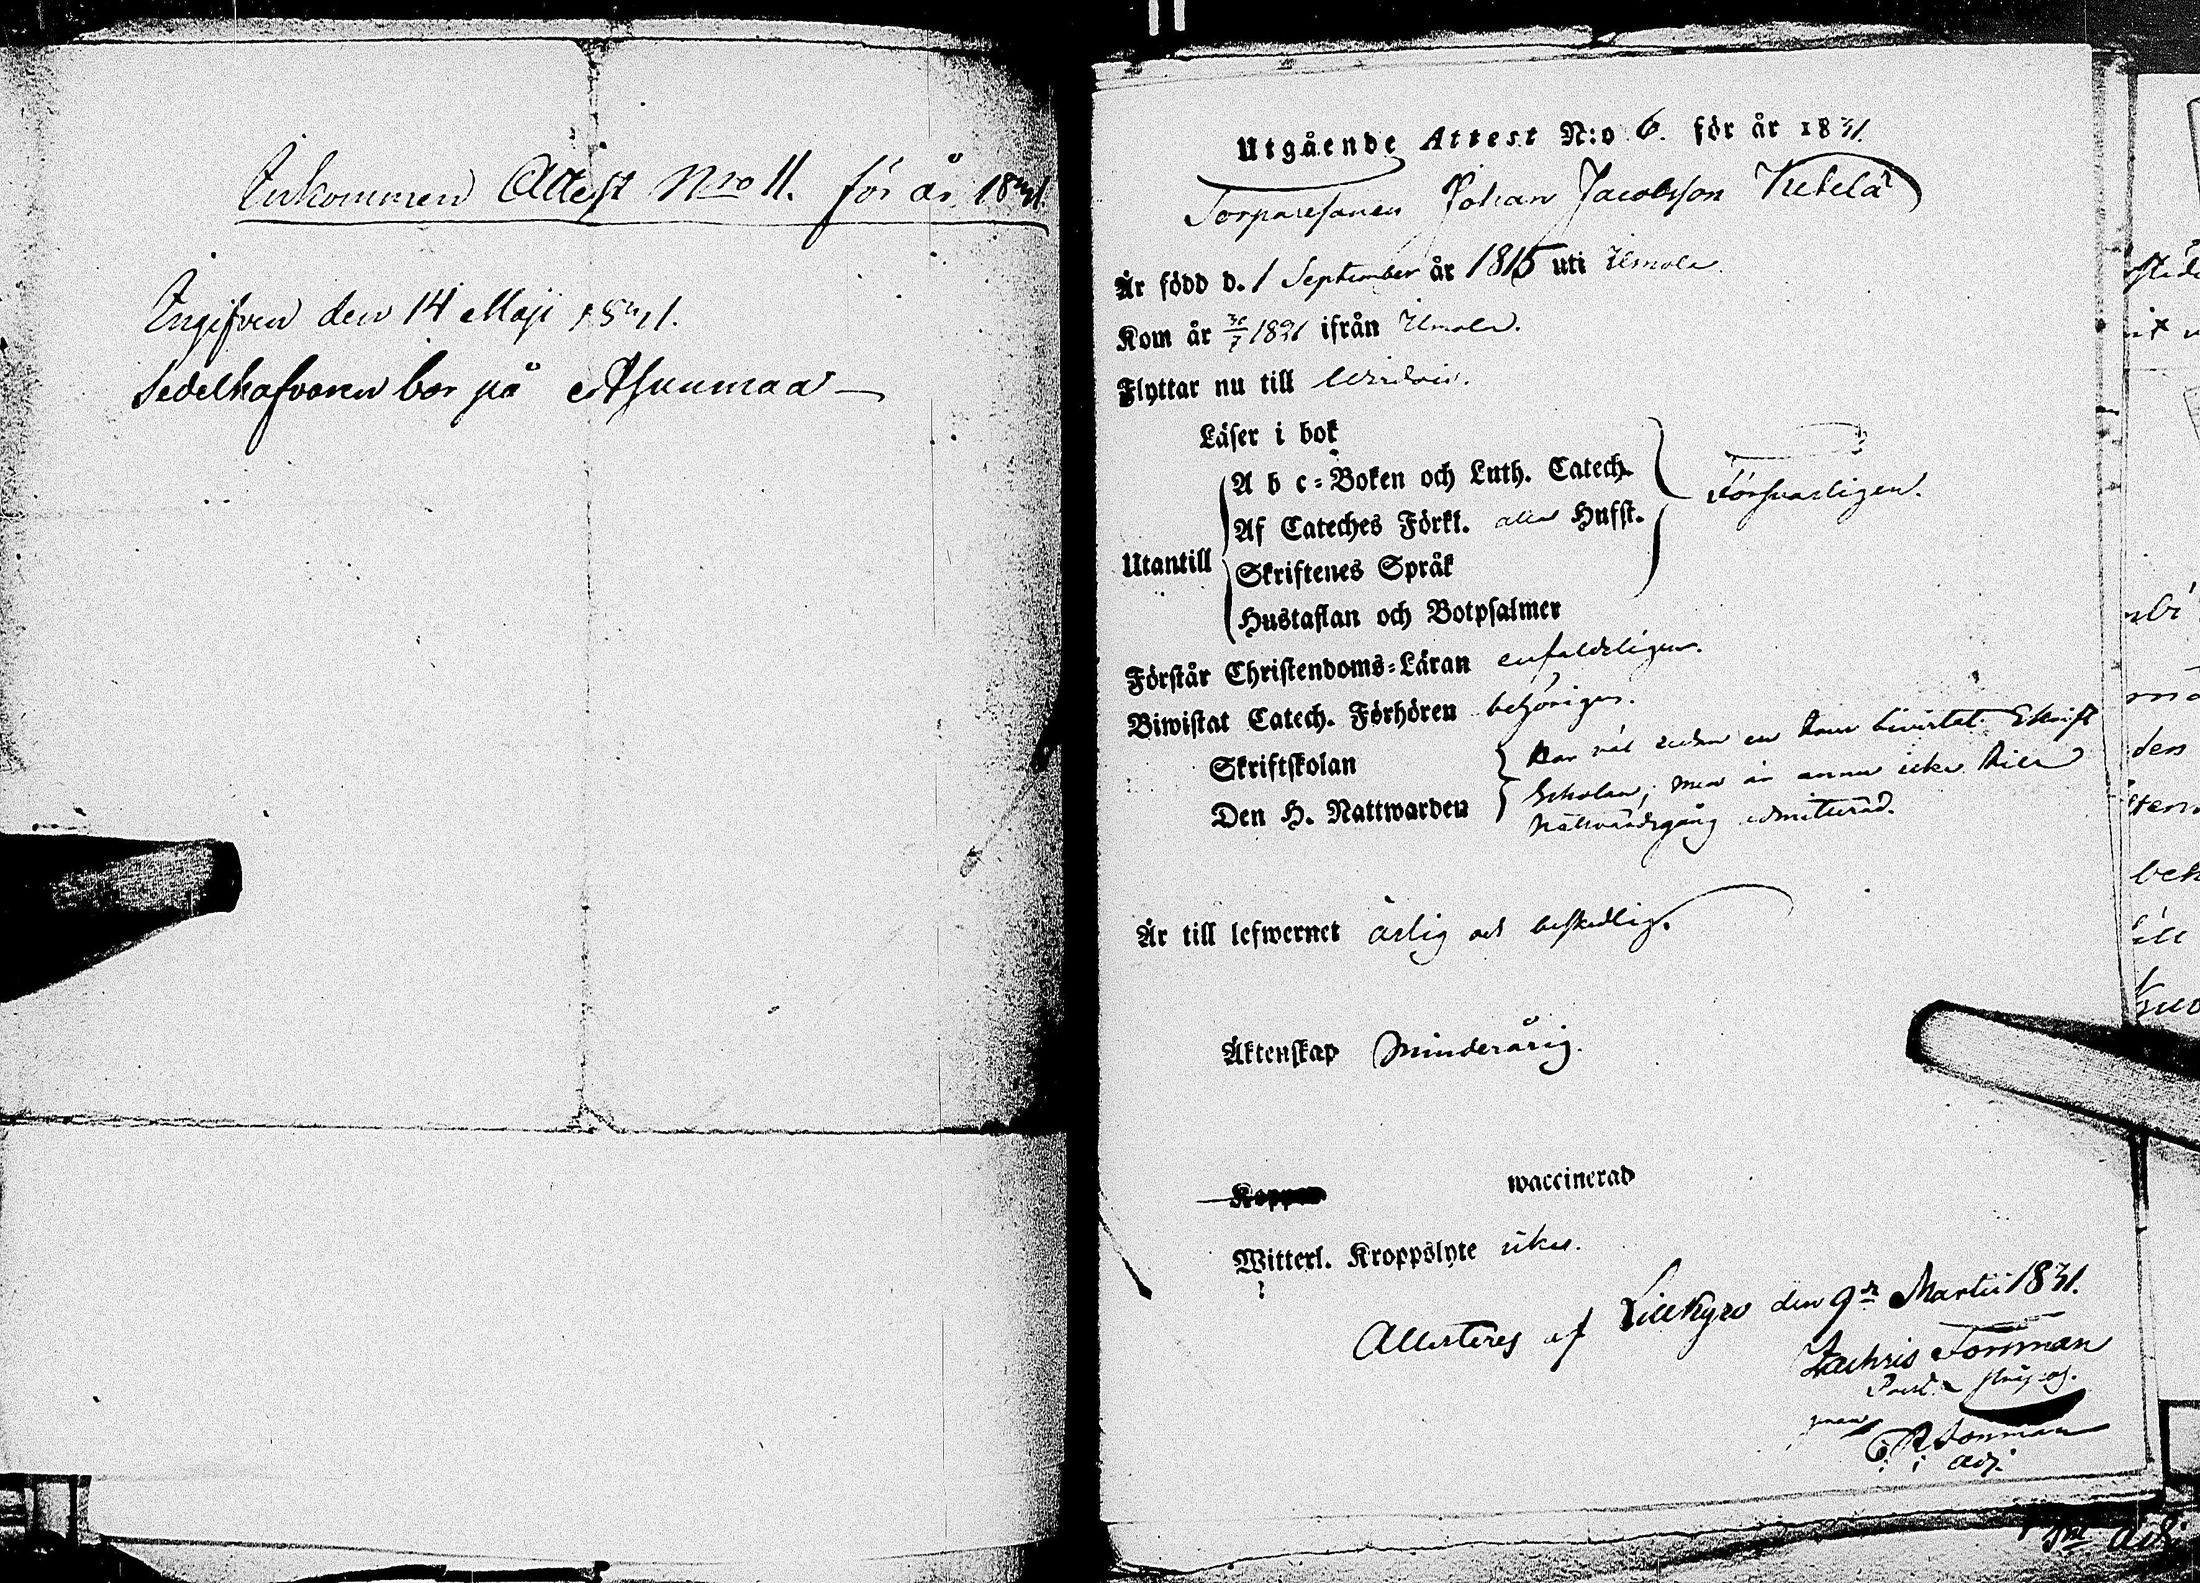 Inkommen Attest Nro 11. för år 1831.
Ingifven den 14 Maji 1831.
Sedelhafvaren bor på Asunmaa —
Utgående Attest N:o 6. för år 1831.
Torparesonen Johan Jacobsson Ketelä
Är född d. 1 September år 1815 uti Ilmola.
Kom år 1821 ifrån Ilmola.
Flyttar nu till Wirdois.
Läser i bok
A b c-Boken och Luth. Catech.
Försvarligen.
Af Cateches Förkl. alla Husst.
Utantill
Skriftenes Språk
Hustaflan och Botpsalmer
Förstår Christendoms-Läran enfaldeligen.
Biwistat Catech. Förhören behörigen.
Skriftskolan
Har väl redan en bivistat Skrift
Scholan, men är ännu icke till
Den H. Nattwarden
Nattvardsgång admitterad.
Är till lefwernet ärlig och beskedlig.
Äktenskap Minderårig.
Koppor waccinerad
Witterl. Kroppslyte icke.
Attesteres af Lillkyro den 9de Martii 1831.
Zachris Forsman
Adj.